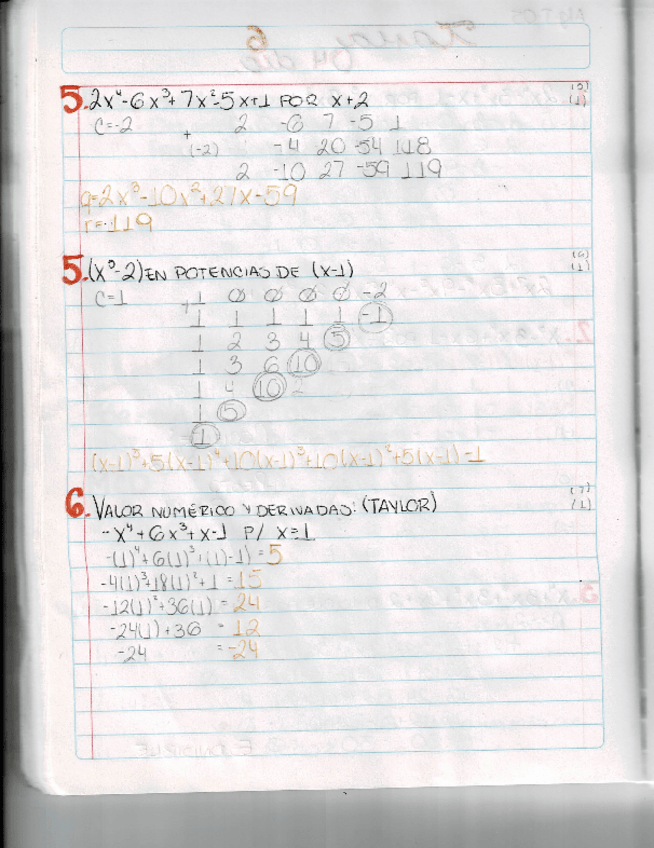 5. 2x⁴-6x³+7x²-5x+1 POR x+2
(5)
(1)
C=-2 + 2 -6 7 -5 1
(-2) -4 20 -54 118
2 -10 27 -59 119
q=2x³-10x²+27x-59
r=119
5. (x⁵-2) EN POTENCIAS DE (x-1)
(6)
(1)
C=1 + 1 0 0 0 0 -2
1 1 1 1 1 -1
1 2 3 4 5
1 3 6 10
1 4 10
1 5
1
(x-1)⁵+5(x-1)⁴+10(x-1)³+10(x-1)²+5(x-1)-1
6. VALOR NUMÉRICO Y DERIVADAS: (TAYLOR)
(7)
(1)
-x⁴+6x³+x-1 P/ x=1
-(1)⁴+6(1)³+(1)-1) = 5
-4(1)³+18(1)²+1 = 15
-12(1)²+36(1) = 24
-24(1)+36 = 12
-24 = -24